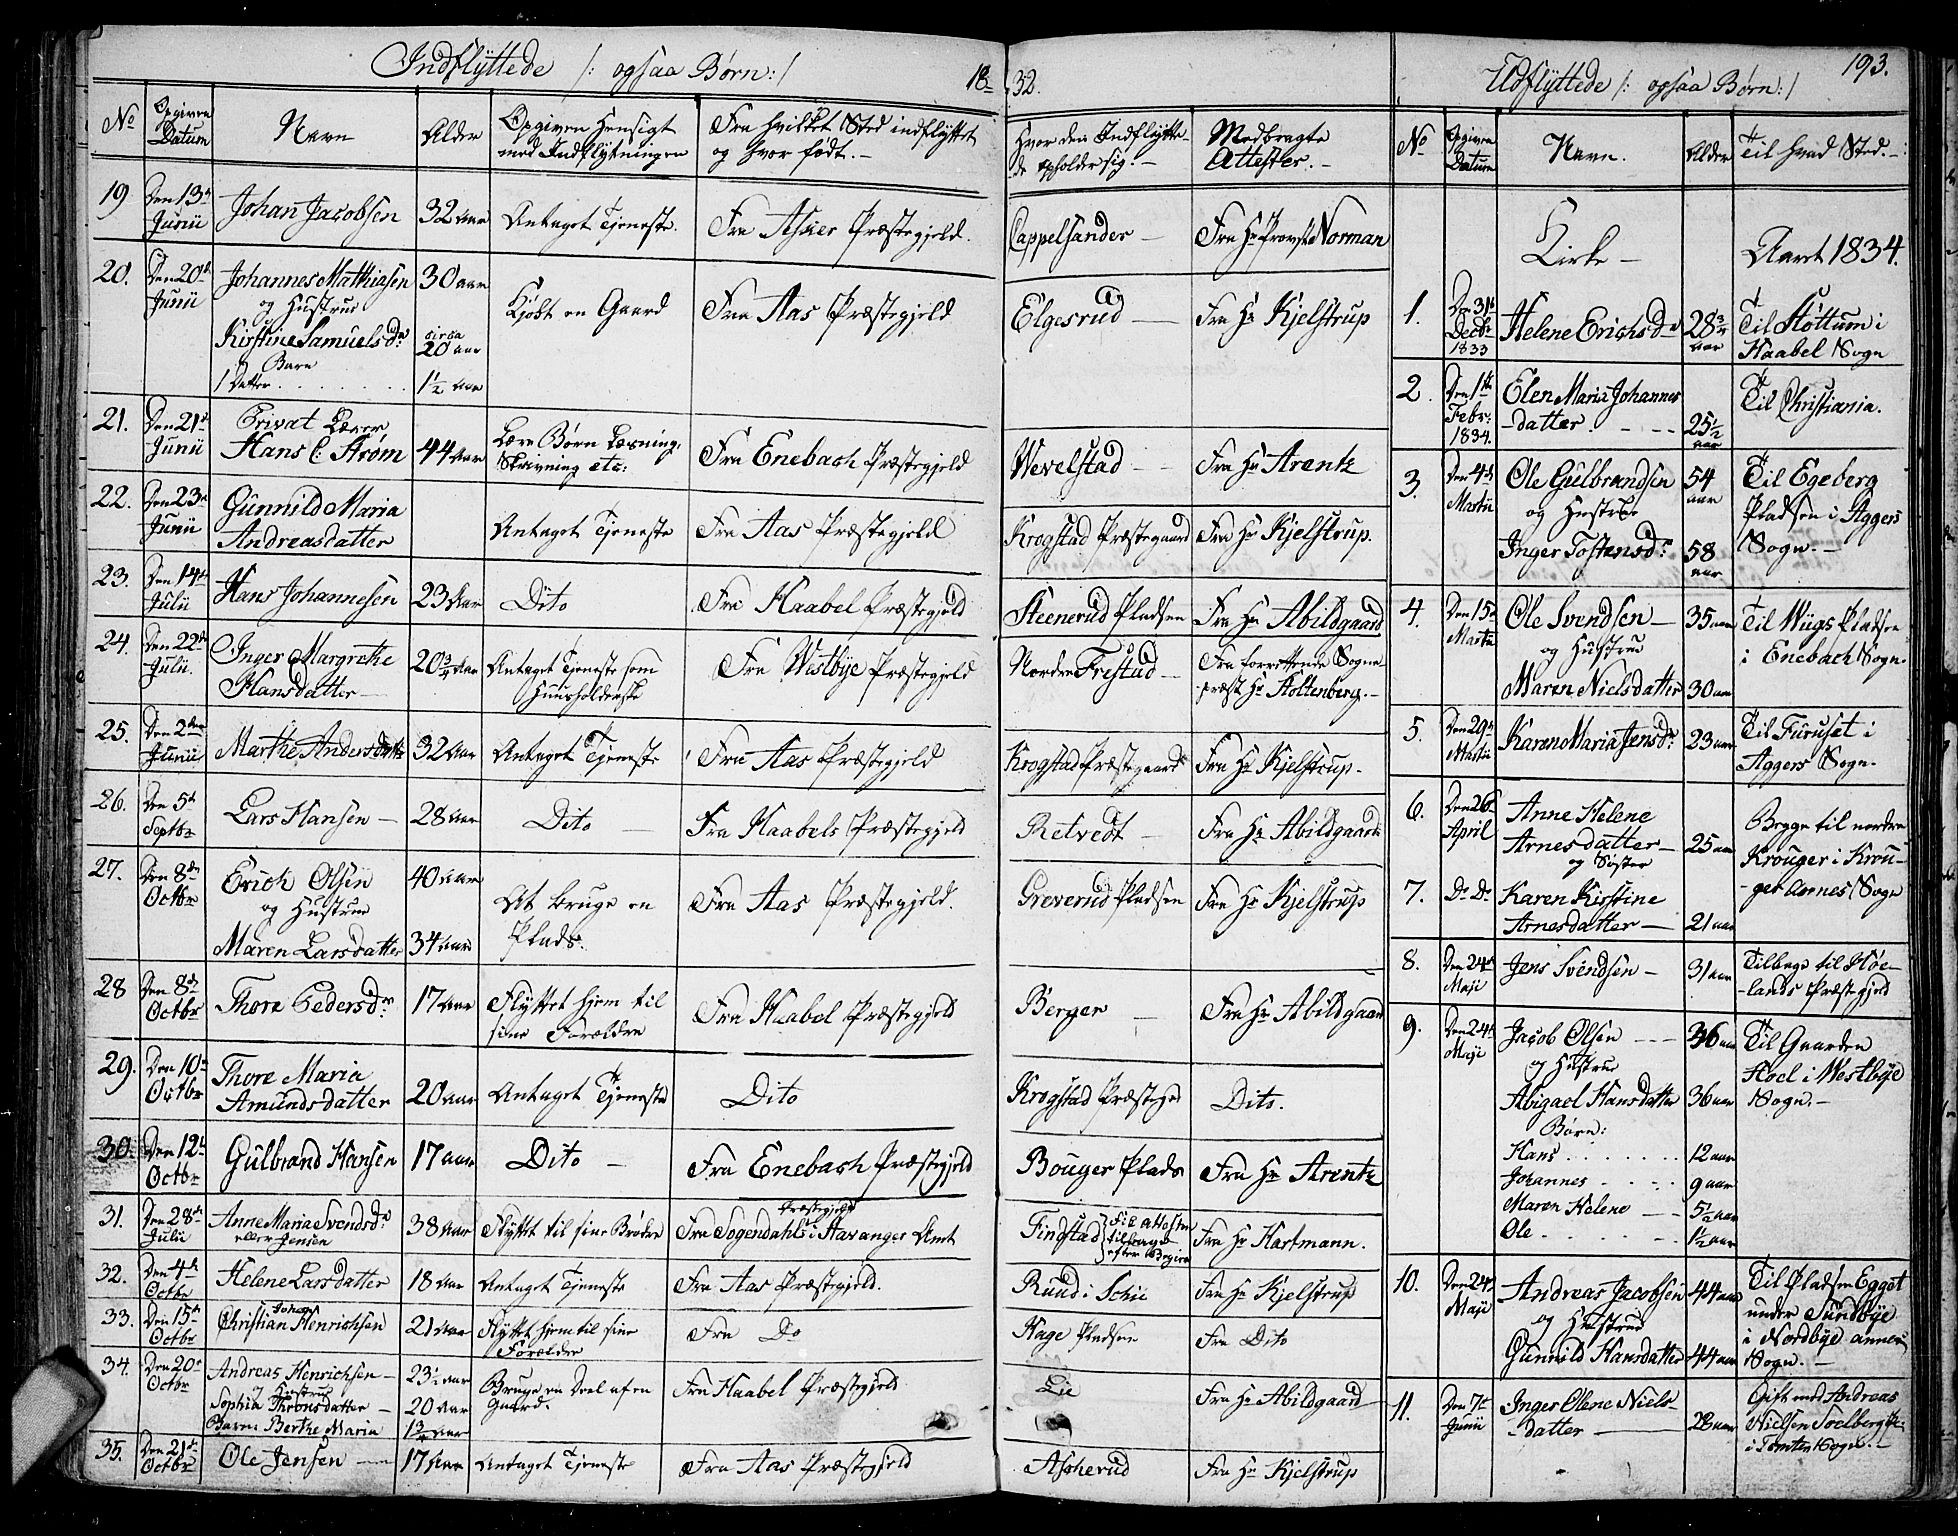 Indflyttede /: ogsaa Børn :/ 18-
No Opgiven Datum Navn Alder Opgiven Hensigt med Indflytningen Fra hvilket Sted indflyttet og hvor født.-
19 Den 13de Junii Johan Jacobsen 32 Aar Antaget Tjeneste. Fra Asker Præstegjeld.
20. Den 20de Junii Johannes Matthiasen 30 Aar Kjøbt en Gaard Fra Aas Præstegjeld
og Hustrue
Kirstine Samuelsdr circa 20 Aar
1 Datter . . . . 1½ Aar
21. Den 21de Junii Privat Lærer
Hans C: Strøm 44 Aar Lære Børn Læsning, Skrivning etc: Fra Enebach Præstegjeld
22. Den 23de Junii Gunnild Maria
Andreasdatter Antaget Tjeneste Fra Aas Præstegjeld
23. Den 14de Julii Hans Johannesen 23 Aar Dito Fra Haabel Præstegjeld
24. Den 22de Julii. Inger Margrethe
Hansdatter 20¾ Aar Antaget Tjeneste som Huusholderske Fra Westbye Præstegjeld
25. Den 2den Junii Marthe Andersdatter 32 Aar Antaget Tjeneste Fra Aas Præstegjeld
26. Den 5te Septbr Lars Hansen - 28 Aar Dito Fra Haabels Præstegjeld
27. Den 8de Octbr Erich Olsen 40 Aar At bruge en Plads. Fra Aas Præstegjeld.
og Hustrue
Maren Larsdatter 34 Aar
28 Den 8de Octbr Thore Pedersdr 17 Aar Flyttet hjem til sine Forældre Fra Haabel Præstegjeld
29. Den 10de Octbr Thore Maria
Amundsdatter 20 Aar Antaget Tjeneste Dito
30. Den 12te Octbr Gulbrand Hansen 17 Aar Dito - Fra Enebach Præstegjeld
31. Den 28de Julii Anne Maria Svendsdr
eller Jensen 38 Aar Flyttet til sine Brødre Fra Sogendahls Præstegjeld i Stavanger Amt
32. Den 4de Octbr Helene Larsdatter 18 Aar Antaget Tjeneste Fra Aas Præstegjeld.
33. Den 15de Octbr Christian Johan Henrichsen 21 Aar Flyttet hjem til sine Forældre Fra Do
34. Den 20de Octbr Andreas Henrichsen - 23½ Aar Bruge en Deel af en Gaard. Fra Haabel Præstegjeld
og Hustrue
Sophia Thronsdatter - 20 Aar
Barn Berthe Maria 1¾ Aar
35. Den 21de Octbr Ole Jensen 17 Aar Antaget Tjeneste Fra Aas Præstegjeld
32.
Hvor den Indflytte-
de opholder sig.- Medbragte Attester.-
Cappelsander - Fra Hr Provst Norman
Elgesrud - Fra Hr Kjelstrup
Wevelstad - Fra Hr Arentz
Krogstad Præstegaard Fra Hr Kjelstrup.
Steenerud Pladsen Fra Hr Abildgaard
Nordre Frestud - Fra forrettende Sogne-
præst Hr Stoltenberg.-
Krogstad Præstegaard Fra Hr Kjelstrup.
Retvedt - Fra Hr Abildgaard
Greverud Pladsen Fra Hr Kjelstrup
Berger - Fra Hr Abildgaard
Krogstad Præstegd Dito.
Bouger Plads Fra Hr Arentz
Findstad Fik Attesten tilbage efter Begiering Fra Hr Hartmann.
Ruud i Schie Fra Hr Kjelstrup
Hage Pladsen Fra Dito
Lie Fra Hr Abildgaard
Askerud Fra Hr Kjelstrup
Udflyttede /: ogsaa Børn :/ 193.
No Opgiven Datum Navn. Alder Til hvad Sted.-
Kirke - Aaret 1834.
1. Den 31te Decbr 1833 Helene Erichsdr 28¾ Aar Til Støttum i
Haabel Sogn
2. Den 1ste Febr: 1834. Elen Maria Johannes
-datter. 25½ Aar Til Christiania.
3. Den 4de Martii Ole Gulbrandsen 54 Aar Til Egeberg
og Hustrue Pladsen i Aggers
Inger Tostensdr 58 Aar Sogn.-
4. Den 15de Martii Ole Svendsen - 35 Aar Til Wiigs Pladsen
og Hustrue i Enebach Sogn.
Maren Nielsdatter 30 Aar
5. Den 29de Martii Karen Maria Jensdr 23 Aar Til Furuset i
Aggers Sogn.
6. Den 26de April Anne Helene
Arnesdatter - 25 Aar Begge til nordre
og Søster Krouger i Krou-
7. Do Do Karen Kirstine -ger Annex Sogn
Arnesdatter - 21 Aar
8. Den 24de Maji Jens Svendsen - 31 Aar Tilbage til Høe-
-lands Præstegjeld
9. Den 24de Maji Jacob Olsen - - 36 Aar Til Gaarden
og Hustrue Hoel i Westbye
Abigael Hansdatter 36 Aar Sogn.-
Børn:
Hans . . . . 12 Aar
Johannes . . . . 9 Aar
Maren Helene - 5½ Aar
Ole . . . . 1½ Aar
10. Den 24de Maji Andreas Jacobsen 44 Aar Til Pladsen Egget
og Hustrue under Sundbye
Gunnild Hansdatter 44 Aar i Nordbye annex Sogn.-
11. Den 7de Junii Inger Olene Niels-
-datter 22 Aar Gift med Andreas
Nielsen Soelberg
i Tomter Sogn.-